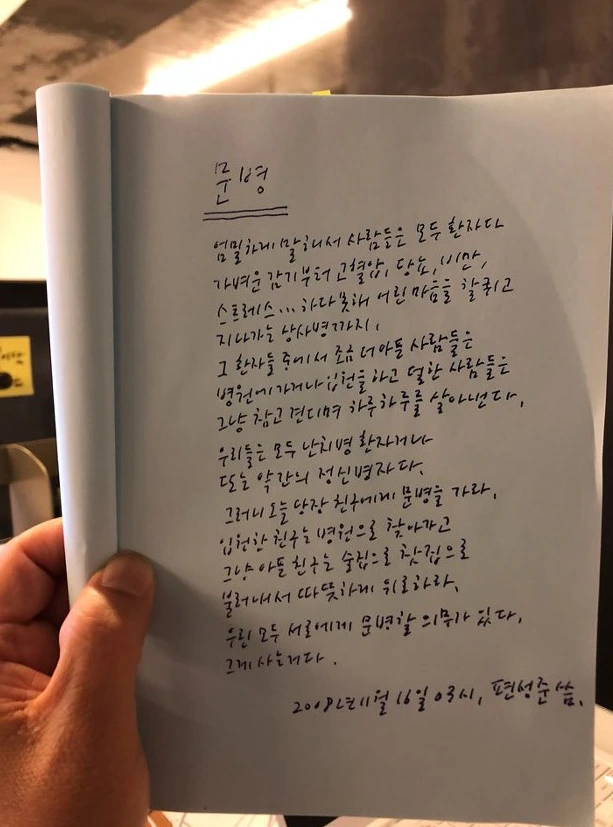 문병
엄밀하게 말해서 사람들은 모두 환자다
가벼운 감기부터 고혈압, 당뇨, 비만,
스트레스... 하다못해 어린 마음을 할퀴고
지나가는 상사병까지.
그 환자들 중에서 조금 더 아픈 사람들은
병원에 가거나 입원을 하고 덜한 사람들은
그냥 참고 견디며 하루하루를 살아낸다.
우리들은 모두 난치병 환자거나
또는 약간의 정신병자다.
그러니 오늘 당장 친구에게 문병을 가라.
입원한 친구는 병원으로 찾아가고
그냥 아픈 친구는 술집으로 찻집으로
불러내서 따뜻하게 위로하라.
우린 모두 서로에게 문병할 의무가 있다.
그게 사는거다.
2008년 11월 16일 03시, 편성준 씀.